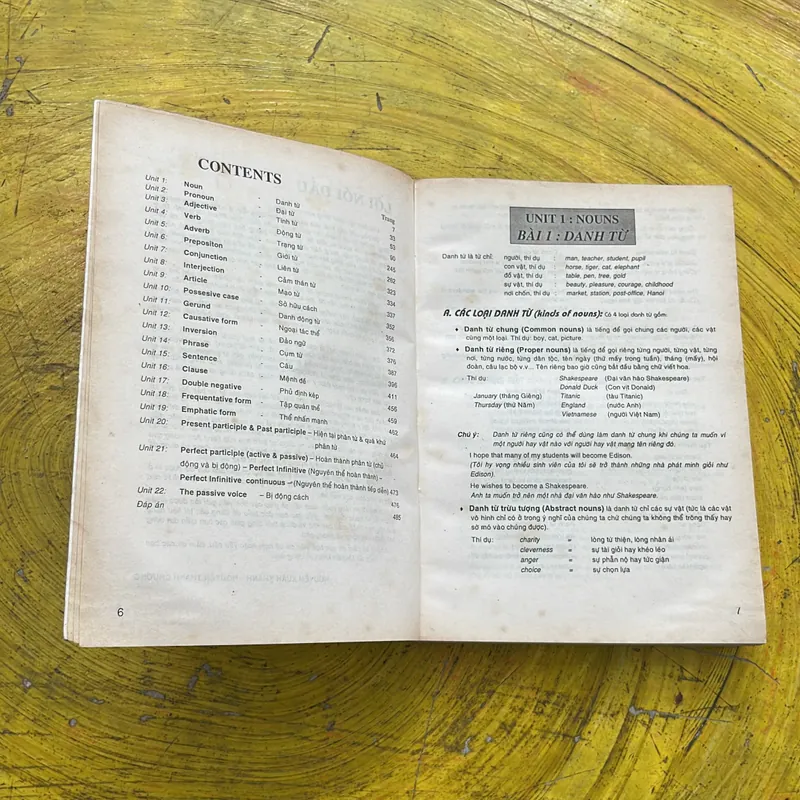 CONTENTS
Trang
Unit 1: Noun - Danh từ 7
Unit 2: Pronoun - Đại từ 33
Unit 3: Adjective - Tính từ 53
Unit 4: Verb - Động từ 90
Unit 5: Adverb - Trạng từ 245
Unit 6: Prepositon - Giới từ 262
Unit 7: Conjunction - Liên từ 323
Unit 8: Interjection - Cảm thán từ 334
Unit 9: Article - Mạo từ 337
Unit 10: Possesive case - Sở hữu cách 352
Unit 11: Gerund - Danh động từ 356
Unit 12: Causative form - Ngoại tác thể 372
Unit 13: Inversion - Đảo ngữ 376
Unit 14: Phrase - Cụm từ 387
Unit 15: Sentence - Câu 396
Unit 16: Clause - Mệnh đề 411
Unit 17: Double negative - Phủ định kép 456
Unit 18: Frequentative form - Tập quán thể 459
Unit 19: Emphatic form - Thể nhấn mạnh 462
Unit 20: Present participle & Past participle – Hiện tại phân từ & quá khứ
phân từ 464
Unit 21: Perfect participle (active & passive) – Hoàn thành phân từ (chủ
động và bị động) – Perfect Infinitive (Nguyên thể hoàn thành) –
Perfect Infinitive continuous – (Nguyên thể hoàn thành tiếp diễn) 473
Unit 22: The passive voice – Bị động cách 476
Đáp án 485
6
UNIT 1 : NOUNS
BÀI 1 : DANH TỪ
Danh từ là từ chỉ: người, thí dụ : man, teacher, student, pupil
con vật, thí dụ : horse, tiger, cat, elephant
đồ vật, thí dụ : table, pen, tree, gold
sự vật, thí dụ : beauty, pleasure, courage, childhood
nơi chốn, thí dụ : market, station, post-office, Hanoi
A. CÁC LOẠI DANH TỪ (kinds of nouns): Có 4 loại danh từ gồm:
♦ Danh từ chung (Common nouns) là tiếng để gọi chung các người, các vật
cùng một loại. Thí dụ: boy, cat, picture.
♦ Danh từ riêng (Proper nouns) là tiếng để gọi riêng từng người, từng vật, từng
nơi, từng nước, từng dân tộc, tên ngày (thứ mấy trong tuần), tháng (mấy), hội
đoàn, câu lạc bộ v.v... Tên riêng bao giờ cũng bắt đầu bằng chữ viết hoa.
Thí dụ: Shakespeare (Đại văn hào Shakespeare)
Donald Duck (Con vịt Donald)
January (tháng Giêng) Titanic (tàu Titanic)
Thursday (thứ Năm) England (nước Anh)
Vietnamese (người Việt Nam)
Chú ý: Danh từ riêng cũng có thể dùng làm danh từ chung khi chúng ta muốn ví
một người hay vật nào với người hay vật mang tên riêng đó.
I hope that many of my students will become Edison.
(Tôi hy vọng nhiều sinh viên của tôi sẽ trở thành những nhà phát minh giỏi như
Edison).
He wishes to become a Shakespeare.
Anh ta muốn trở nên một nhà đại văn hào như Shakespeare.
♦ Danh từ trừu tượng (Abstract nouns) là danh từ chỉ các sự vật (tức là các vật
vô hình chỉ có ở trong ý nghĩ của chúng ta chứ chúng ta không thể trông thấy hay
sờ mó vào chúng được).
Thí dụ: charity = lòng từ thiện, lòng nhân ái
cleverness = sự tài giỏi hay khéo léo
anger = sự phẫn nộ hay tức giận
choice = sự chọn lựa